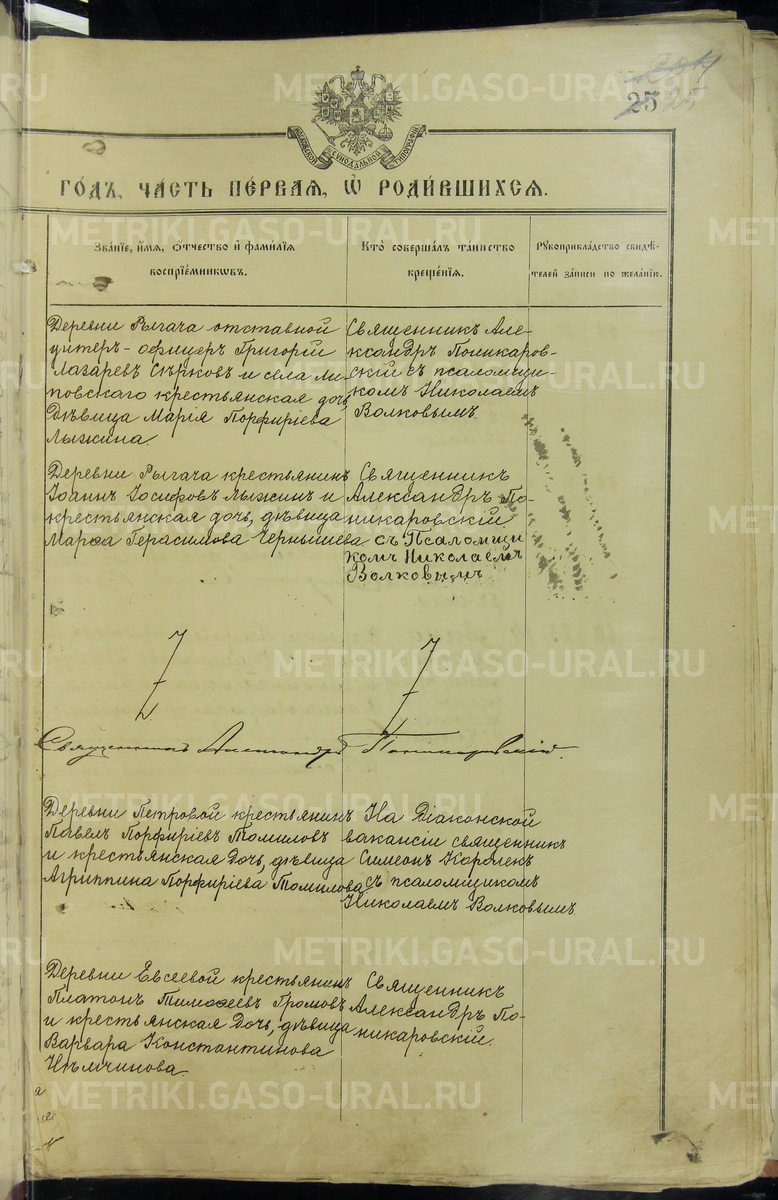 25 25
МОСКОВСКОЙ СѴНОДАЛЬНОЙ ТИПОГРАФІИ
ГО́ДЪ, ЧА́СТЬ ПЕ́РВАЯ, Ѡ҆ РОДИ́ВШИХСЯ.
Зва́нїе, и҆́мя, ѻ҆́тчество и҆ фами́лїя
воспрїе́мникѡвъ.
Кто̀ соверша́лъ та́инство
креще́нїя.
Рꙋкоприкла́дство свидѣ́-
телей за́писи по жела́нїю.
Деревни Рычача отставной
унтеръ-офицеръ Григорій
Лазаревъ Сѣрковъ и села Ли-
повскаго крестьянская дочь,
дѣвица Марія Порфиріева
Лыжина.
Священникъ Але-
ксандръ Поникаров-
скій съ псаломщи-
комъ Николаемъ
Волковымъ.
Деревни Рычача крестьянинъ
Іоаннъ Іосифовъ Лыжинъ и
крестьянская дочь, дѣвица
Марѳа Герасимова Чернышева
Священникъ
Александръ По-
никаровскій
съ Псаломщи
комъ Николаемъ
Волковымъ
Священникъ Александръ Поникаровскій.
Деревни Петровой крестьянинъ
Павелъ Порфиріевъ Томиловъ
и крестьянская дочь, дѣвица
Агриппина Порфиріева Томилова
На Діаконской
вакансіи священникъ
Симеонъ Королек
съ псаломщикомъ
Николаемъ Волковымъ.
Деревни Евсеевой крестьянинъ
Платонъ Тимоѳеевъ Громовъ
и крестьянская дочь, дѣвица
Варвара Константинова
Нѣмчинова.
Священникъ
Александръ По-
никаровскій.
METRIKI.GASO-URAL.RU